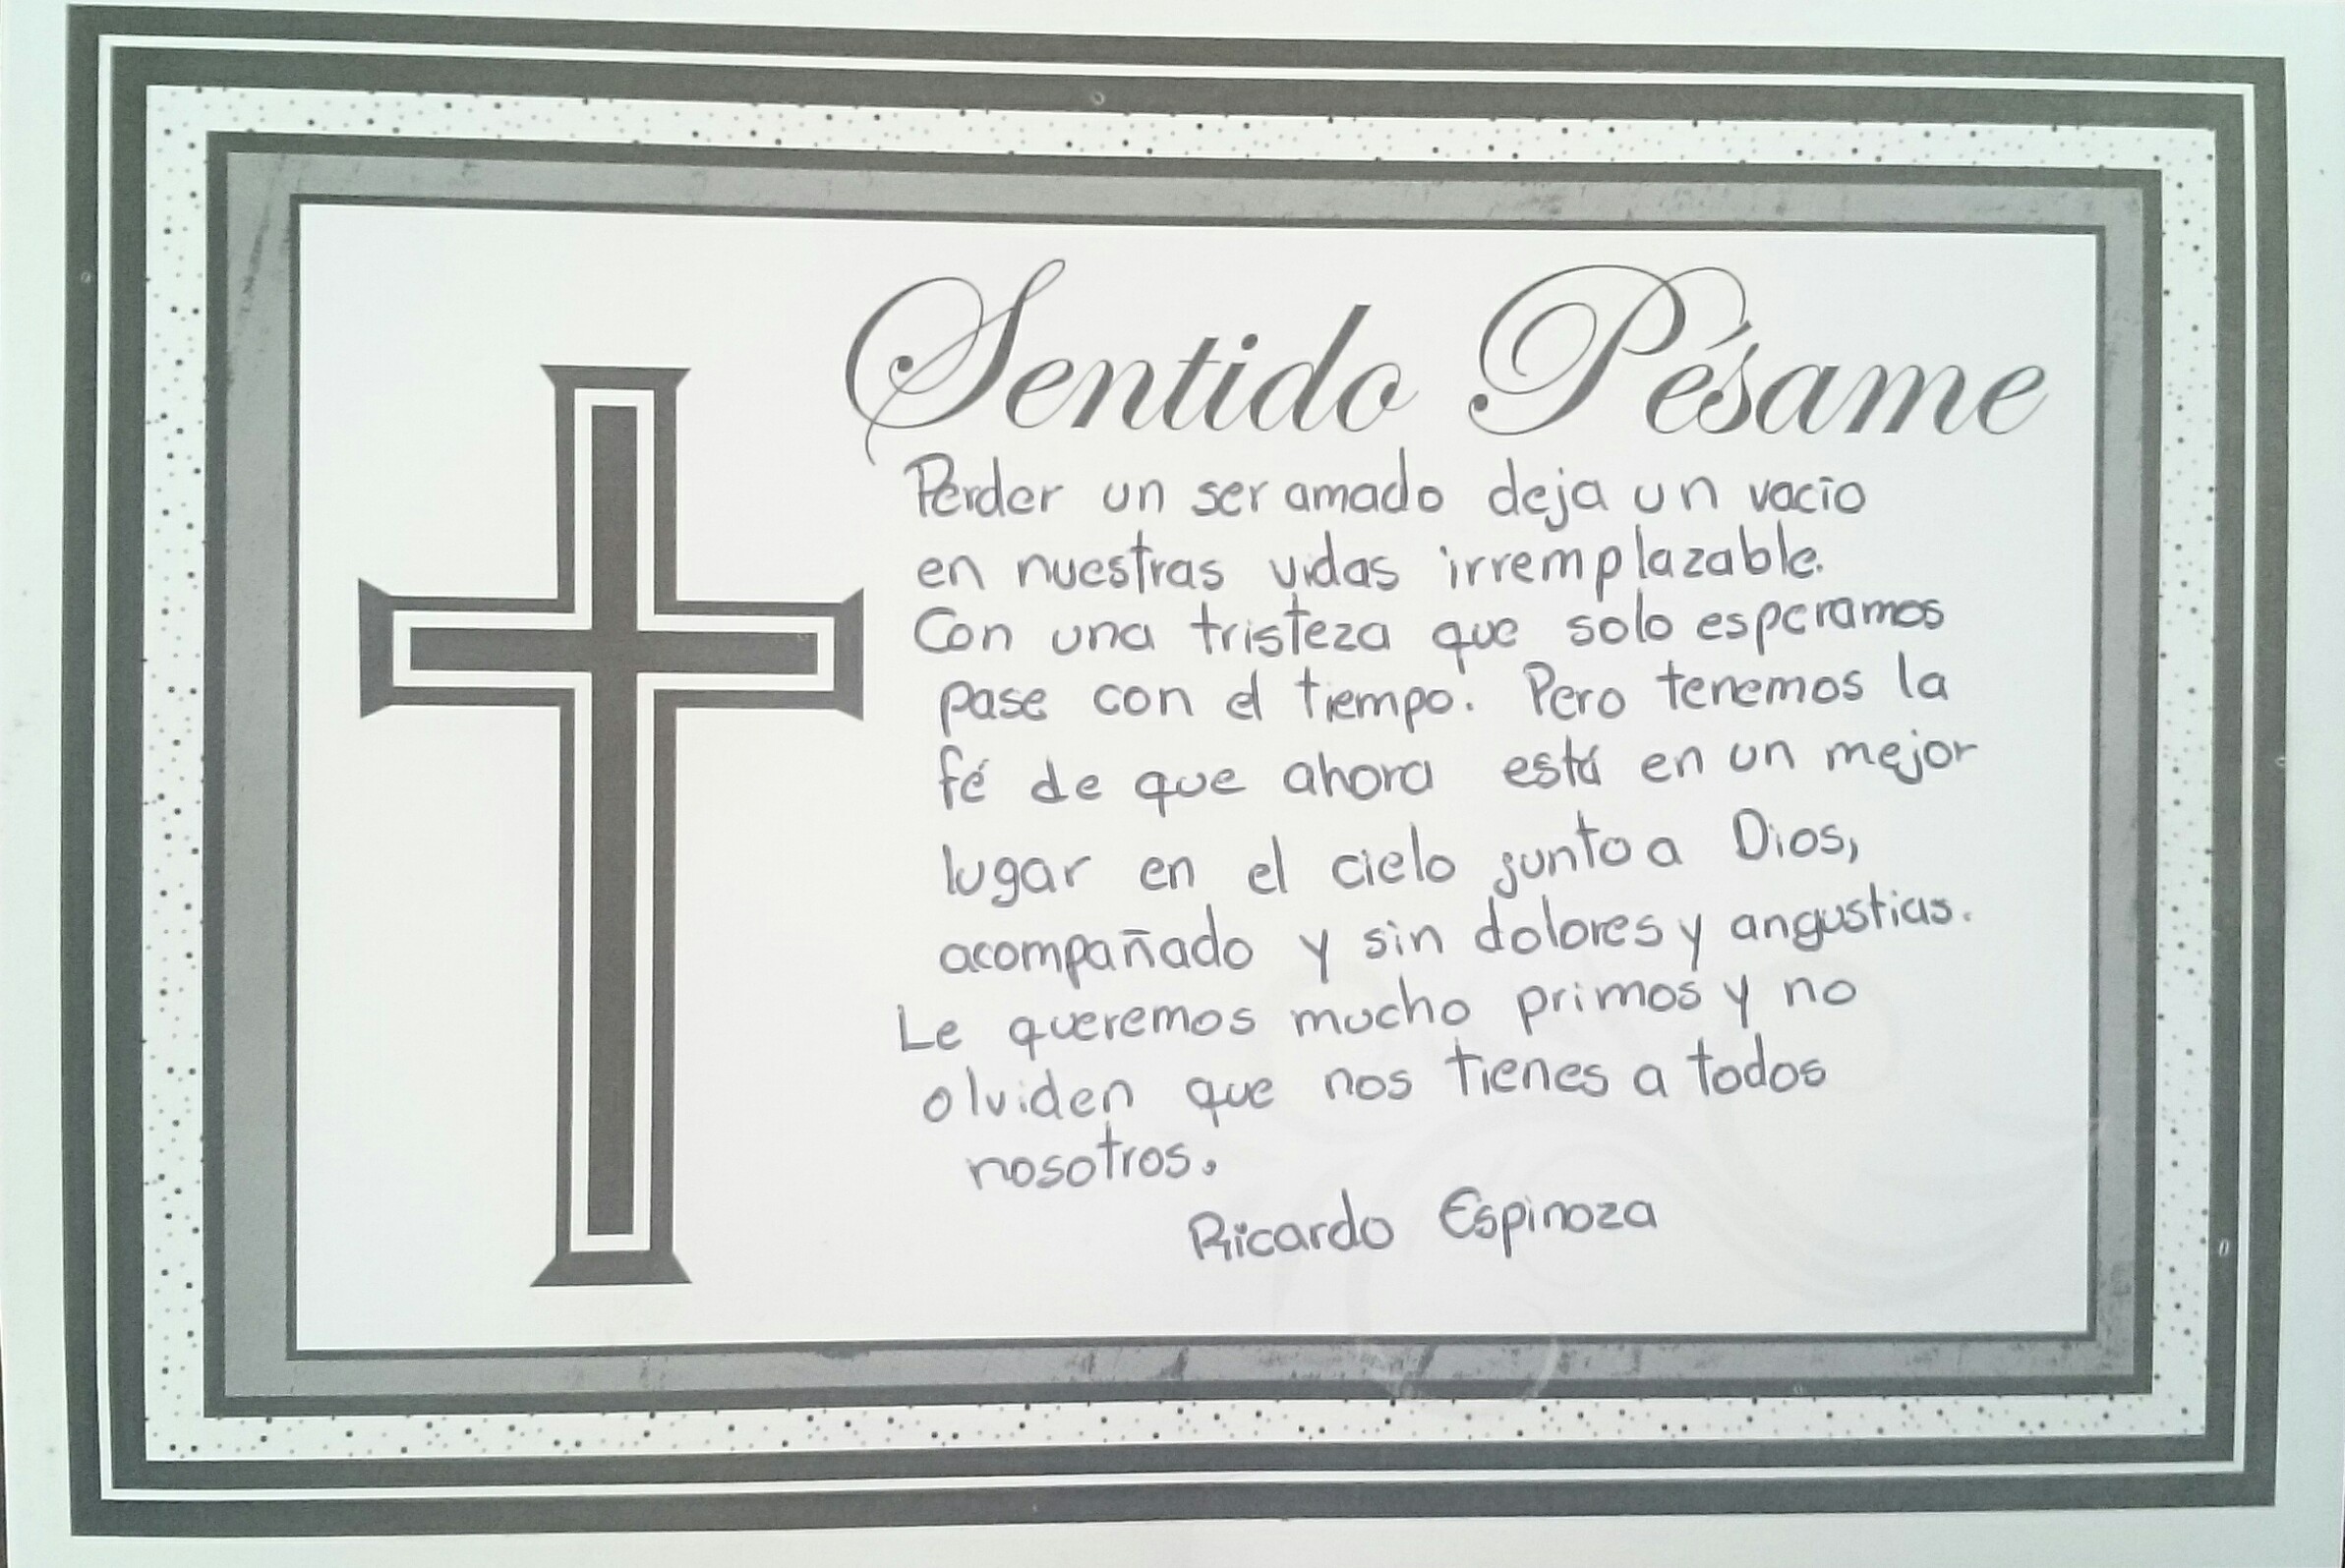 Sentido Pésame
Perder un ser amado deja un vacío
en nuestras vidas irremplazable.
Con una tristeza que solo esperamos
pase con el tiempo. Pero tenemos la
fé de que ahora está en un mejor
lugar en el cielo junto a Dios,
acompañado y sin dolores y angustias.
Le queremos mucho primos y no
olviden que nos tienes a todos
nosotros.
Ricardo Espinoza